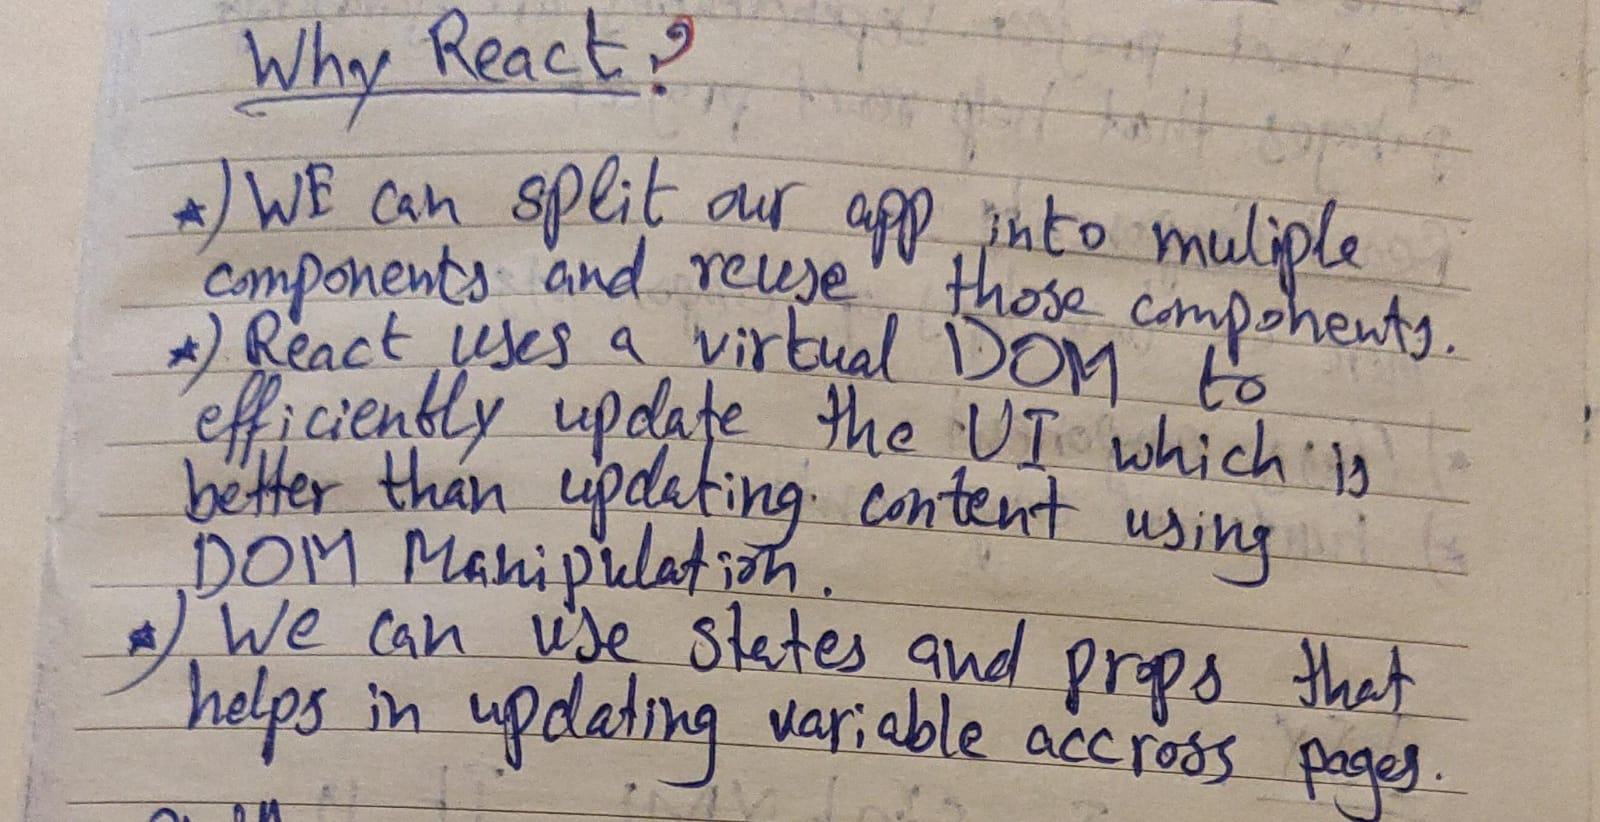 Why React?
*) WE can split our app into muliple
components and reuse those components.
*) React uses a virtual DOM to
efficiently update the UI which is
better than updating content using
DOM Manipulation.
*) We can use states and props that
helps in updating variable accross pages.